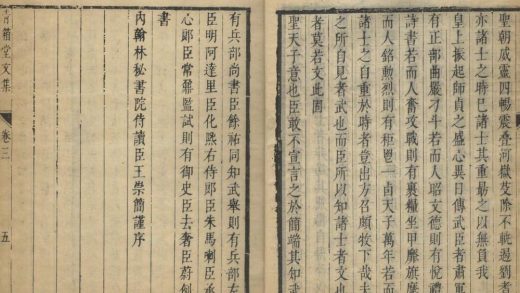 聖朝威靈四暢震疊河嶽芟除不軌遏劉耆
亦諸士之時已諸士其重最之以無負我
皇上振起師貞之盛心異日傳武臣者肅軍
有正部曲嚴刁斗若而人昭文德則有悅禮
詩書若而人奮攻戰則有裹糧坐甲靡旗摩
而人銘勲烈則有秬鬯一卣天子萬年若而
諸士之自重於時者豈出方召頗牧下哉夫
之所自見者武也而臣所以知諸士者文也
者莫若文此固
聖天子意也臣敢不宣言之於簡端其知武
有兵部尚書臣餘祐同知武舉則有兵部左
臣明阿達里臣化熈右侍郎臣朱馬喇臣承
心郎臣常鼐監試則有御史臣去奢臣蔚例
書
內翰林秘書院侍讀臣王崇簡謹序
青箱堂文集
卷三
五